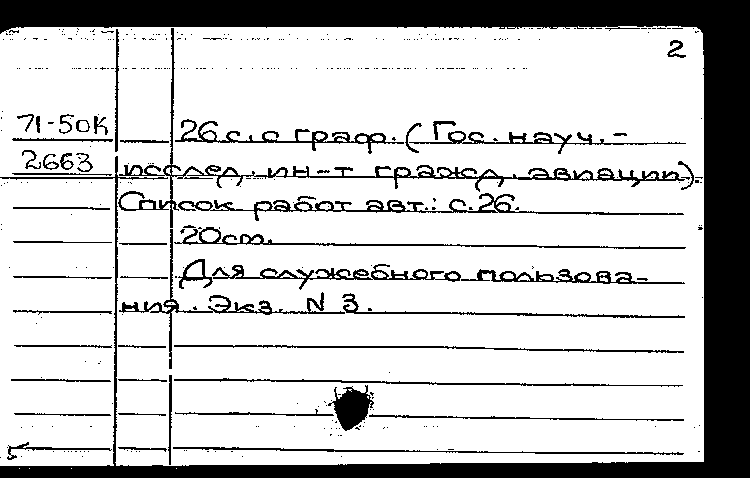 2
71-50К 26 с. с граф. (Гос. науч.-
2663 исслед. ин-т гражд. авиации).
Список работ авт.: с. 26.
20 см.
Для служебного пользова-
ния. Экз. N 3.